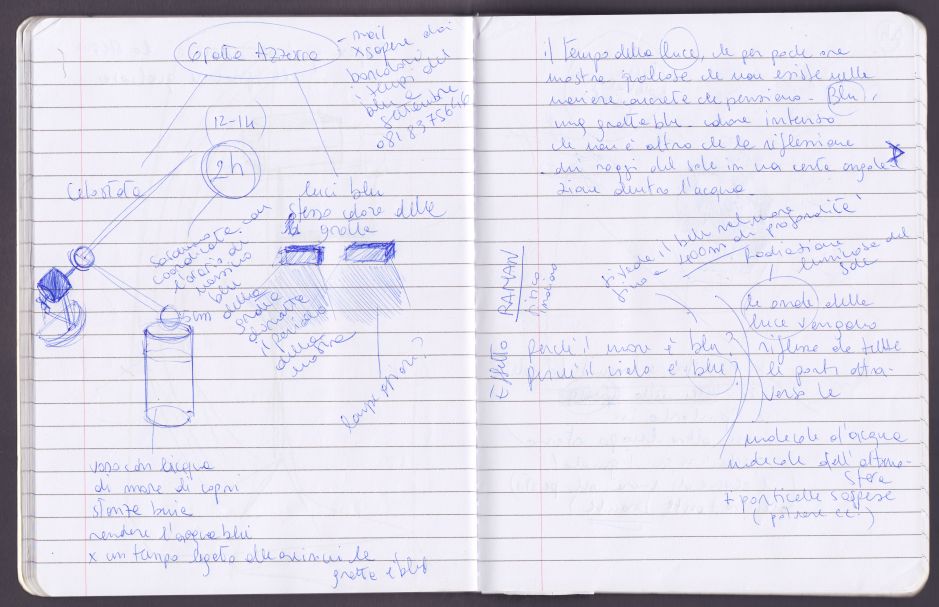 Grotta Azzurra
- mail
x sapere dai
barcaioli
i tempi del
blu a
settembre
081 8375646
12-14
2h
Celostata
luci blu
stesso colore della
grotta
saranno
coordinate con
l'orario di
massimo
blu
della
grotta
durante
il periodo
della
mostra
5cm
lampi
vaso con l'acqua
di mare di capri
stanza buia
rendere l'acqua blu
x un tempo legato alle ore in cui la
grotta è blu
il tempo della luce, che per poche ore
mostra qualcosa che non esiste nella
maniera concreta che pensiamo. Blu,
una grotta blu. colore intenso
che non è altro che la riflessione
dei raggi del sole in una certa angola-
zione dentro l'acqua.
si vede il blu nel mare
fino a 400m di profondità
Radiazione
luminosa del
sole
Effetto RAMAN
fisico
indiano
perché il mare è blu?
perché il cielo è blu?
le onde della
luce vengono
riflesse da tutte
le parti attra-
verso le
molecole d'acqua
molecole dell'atmo-
sfera
+ particelle sospese
(polvere ec.)